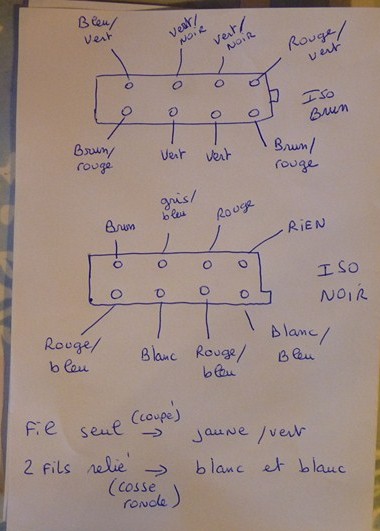 Bleu/
vert
vert/
NOIR
vert/
NOIR
Rouge/
vert
ISO
Brun
Brun/
rouge
vert
vert
Brun/
rouge
Brun
gris/
bleu
Rouge
RiEN
ISO
NOIR
Rouge/
bleu
Blanc
Rouge/
bleu
Blanc/
Bleu
(coupé)
Fil seul → jaune/vert
2 fils relié → blanc et blanc
(cosse
ronde)